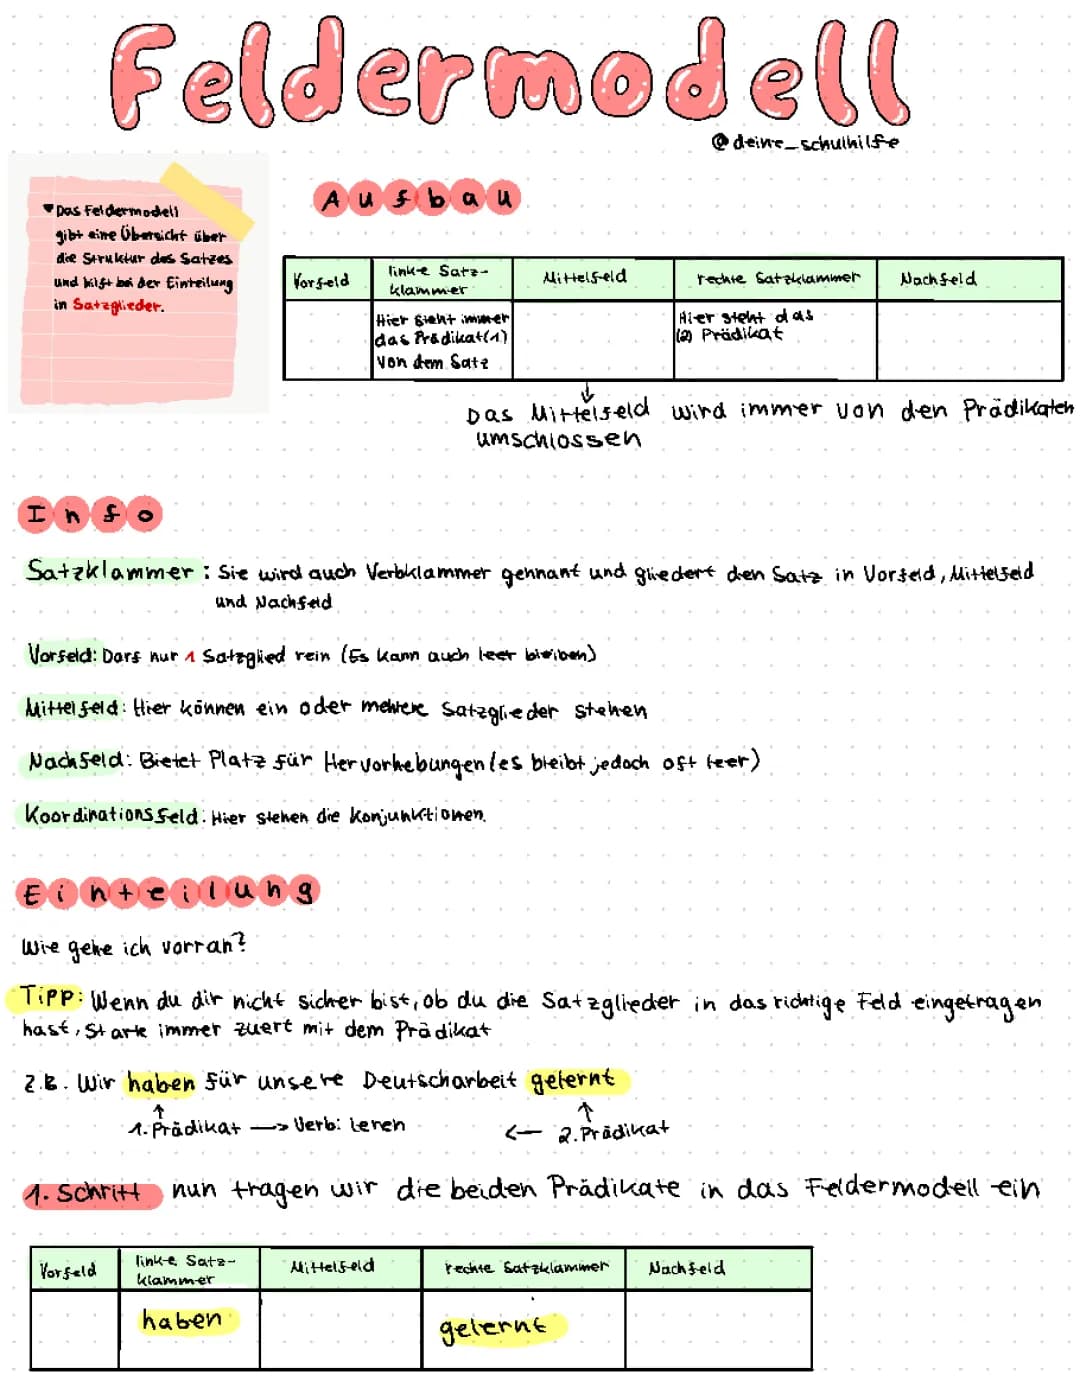 Feldermodell
@deine_schulhilfe
♥ Das Feldermodell
gibt eine Übersicht über
die Struktur des Satzes
und hilft bei der Einteilung
in Satzglieder.
Aufbau
Vorfeld linke Satz- Mittelfeld rechte Satzklammer Nachfeld
klammer
Hier steht immer Hier steht das
das Prädikat(1) (2) Prädikat
von dem Satz
↓
Das Mittelfeld wird immer von den Prädikaten
umschlossen
Info
Satzklammer: Sie wird auch Verbklammer gennant und gliedert den Satz in Vorfeld, Mittelfeld
und Nachfeld
Vorfeld: Darf nur 1 Satzglied rein (Es kann auch leer bleiben)
Mittelfeld: Hier können ein oder mehrere Satzglieder stehen
Nachfeld: Bietet Platz für Hervorhebungen (es bleibt jedoch oft leer)
Koordinationsfeld: Hier stehen die Konjunktionen.
Einteilung
Wie gehe ich vorran?
Tipp: Wenn du dir nicht sicher bist, ob du die Satzglieder in das richtige Feld eingetragen
hast, starte immer zuert mit dem Prädikat
z.B. Wir haben für unsere Deutscharbeit gelernt
↑ ↑
1. Prädikat —> Verb: leren <— 2. Prädikat
1. Schritt nun tragen wir die beiden Prädikate in das Feldermodell ein
Vorfeld linke Satz- Mittelfeld rechte Satzklammer Nachfeld
klammer
haben gelernt